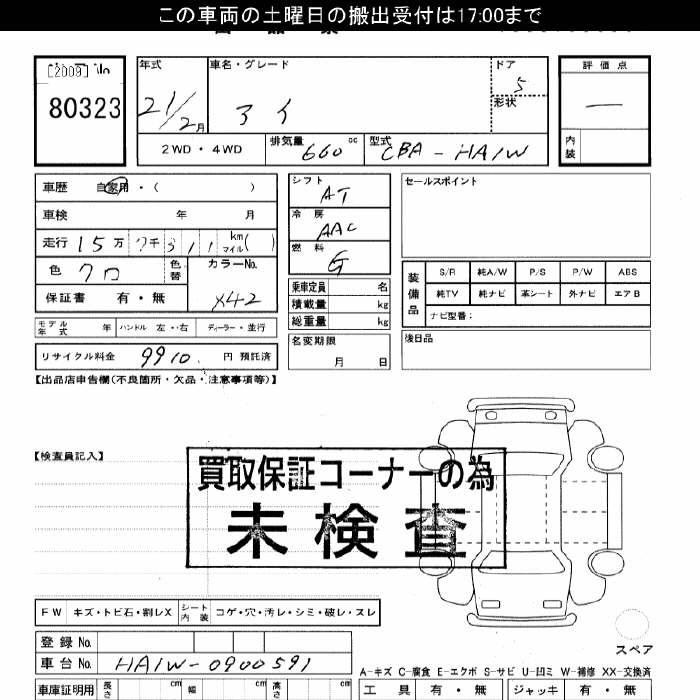 この車両の土曜日の搬出受付は17:00まで
[2009] No
80323
年式 車名・グレード ドア 評価点
21/2月 アイ 5 —
形状
2WD・4WD 排気量 660 cc 型式 CBA-HA1W 内装
車歴 自家用・( )
車検 年 月
走行 15万7千311 km マイル( )
色 クロ 色替 カラーNo. X42
保証書 有・無
モデル年式 年 ハンドル 左・右 ディーラー・並行
リサイクル料金 9910 円 預託済
シフト AT
冷房 AAC
燃料 G
乗車定員 名
積載量 kg
総重量 kg
名変期限
月 日
セールスポイント
装備品 S/R 純A/W P/S P/W ABS
純TV 純ナビ 革シート 外ナビ エアB
ナビ型番:
後日品
【出品店申告欄(不良箇所・欠品・注意事項等)】
【検査員記入】
買取保証コーナーの為
未検査
FW キズ・トビ石・割レX シート内装 コゲ・穴・汚レ・シミ・破レ・スレ
スペア
登録 No.
車台 No. HA1W-0900591
A-キズ C-腐食 E-エクボ S-サビ U-凹ミ W-補修 XX-交換済
車庫証明用 長さ cm 幅 cm 高さ cm 工具 有・無 ジャッキ 有・無